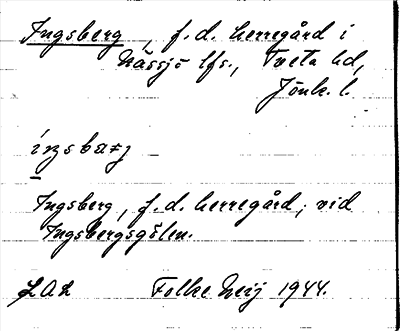 Ingsberg, f.d. herregård i
Nässjö lfs., Tveta hd,
Jönk. l.
Ingsberg, f.d. herregård; vid
Ingsbergsgölen.
LAL Folke Neij 1944.